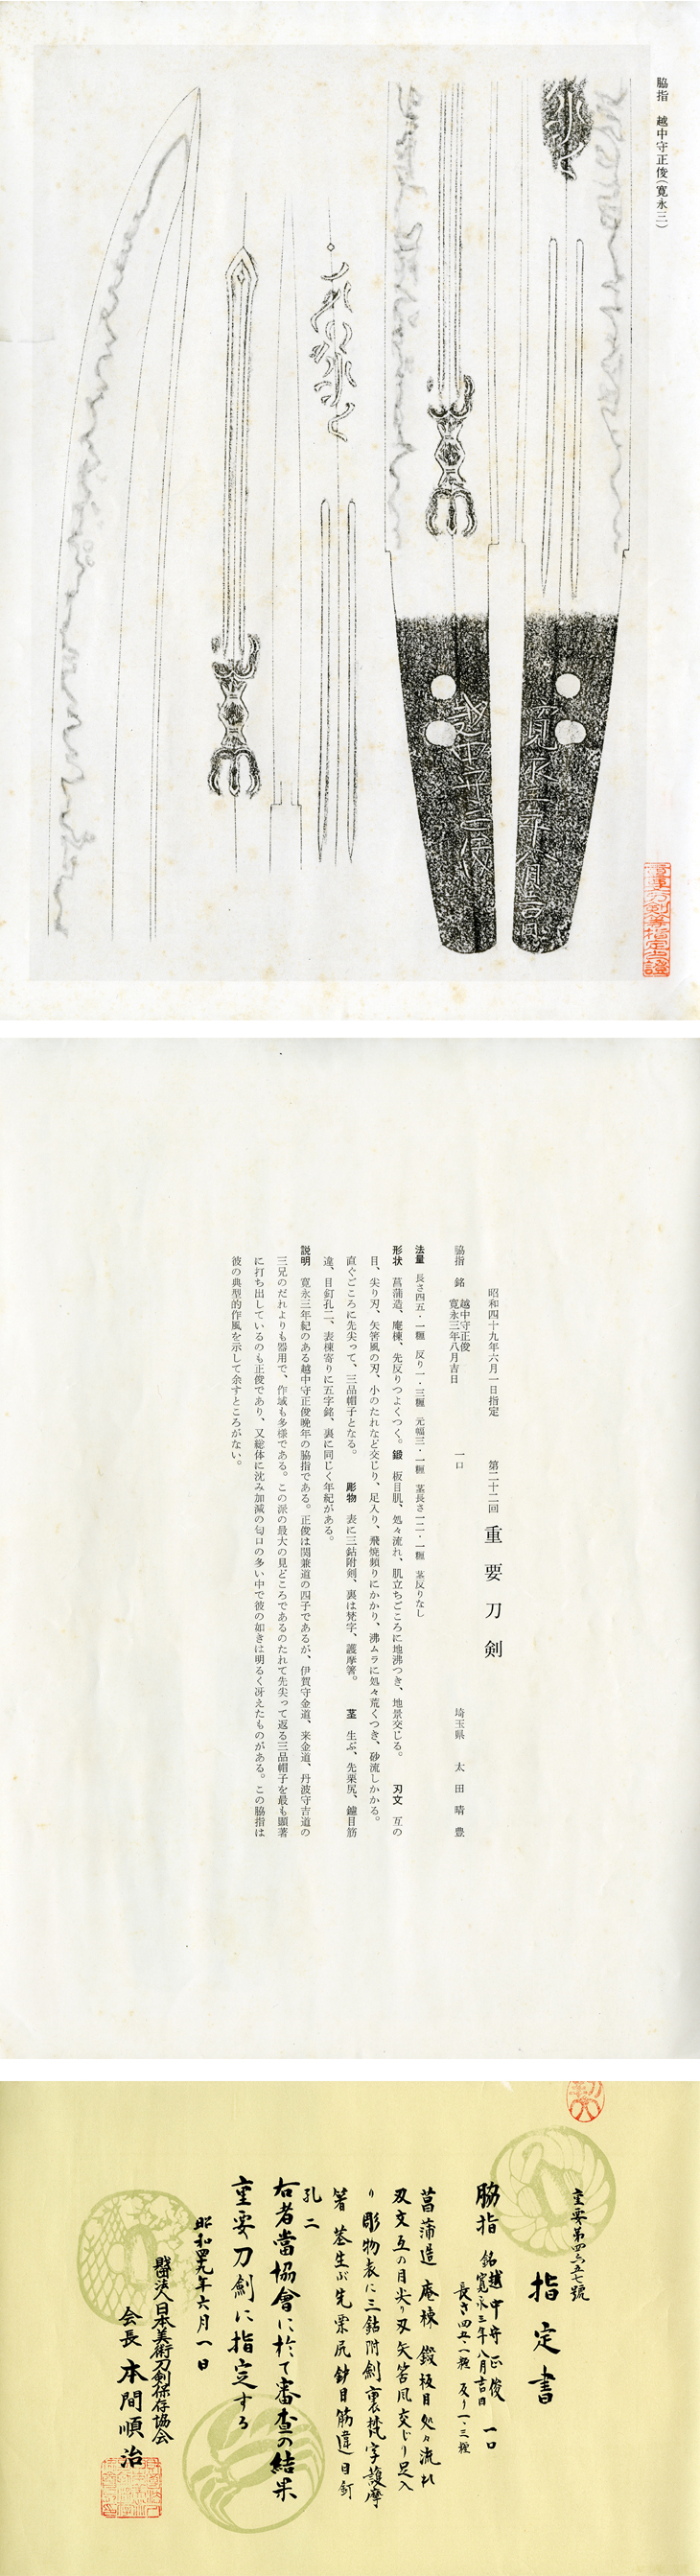 脇指 越中守正俊(寛永三)
寛永三年八月吉日
越中守正俊
重要刀剣等指定之證
昭和四十九年六月一日指定 第二十二回 重要刀剣
脇指 銘 越中守正俊 寛永三年八月吉日 一口 埼玉県 太田晴豊
法量 長さ四五・一糎 反り一・三糎 元幅三・一糎 茎長さ一二・一糎 茎反りなし
形状 菖蒲造、庵棟、先反りつよくつく。 鍛 板目肌、処々流れ、肌立ちごころに地沸つき、地景交じる。 刃文 互の
目、尖り刃、矢筈風の刃、小のたれなど交じり、足入り、飛焼頻りにかかり、沸ムラに処々荒くつき、砂流しかかる。
直ぐごころに先尖って、三品帽子となる。 彫物 表に三鈷附剣、裏は梵字、護摩箸。 茎 生ぶ、先栗尻、鑢目筋
違、目釘孔二、表棟寄りに五字銘、裏に同じく年紀がある。
説明 寛永三年紀のある越中守正俊晩年の脇指である。正俊は関兼道の四子であるが、伊賀守金道、来金道、丹波守吉道の
三兄のだれよりも器用で、作域も多様である。この派の最大の見どころであるのたれて先尖って返る三品帽子を最も顕著
に打ち出しているのも正俊であり、又総体に沈み加減の匂口の多い中で彼の如きは明るく冴えたものがある。この脇指は
彼の典型的作風を示して余すところがない。
重要第四六五七號
指定書
脇指 銘 越中守正俊 寛永三年八月吉日 一口
長さ四五・一糎 反り一・三糎
菖蒲造 庵棟 鍛板目処々流れ
刃文互の目尖り刃矢筈風交じり足入
り 彫物表に三鈷附剣裏梵字護摩
箸 茎生ぶ先栗尻鑢目筋違目釘
孔二
右者當協會に於て審査の結果
重要刀剣に指定する
昭和四十九年六月一日
財団法人日本美術刀剣保存協会
会長 本間順治